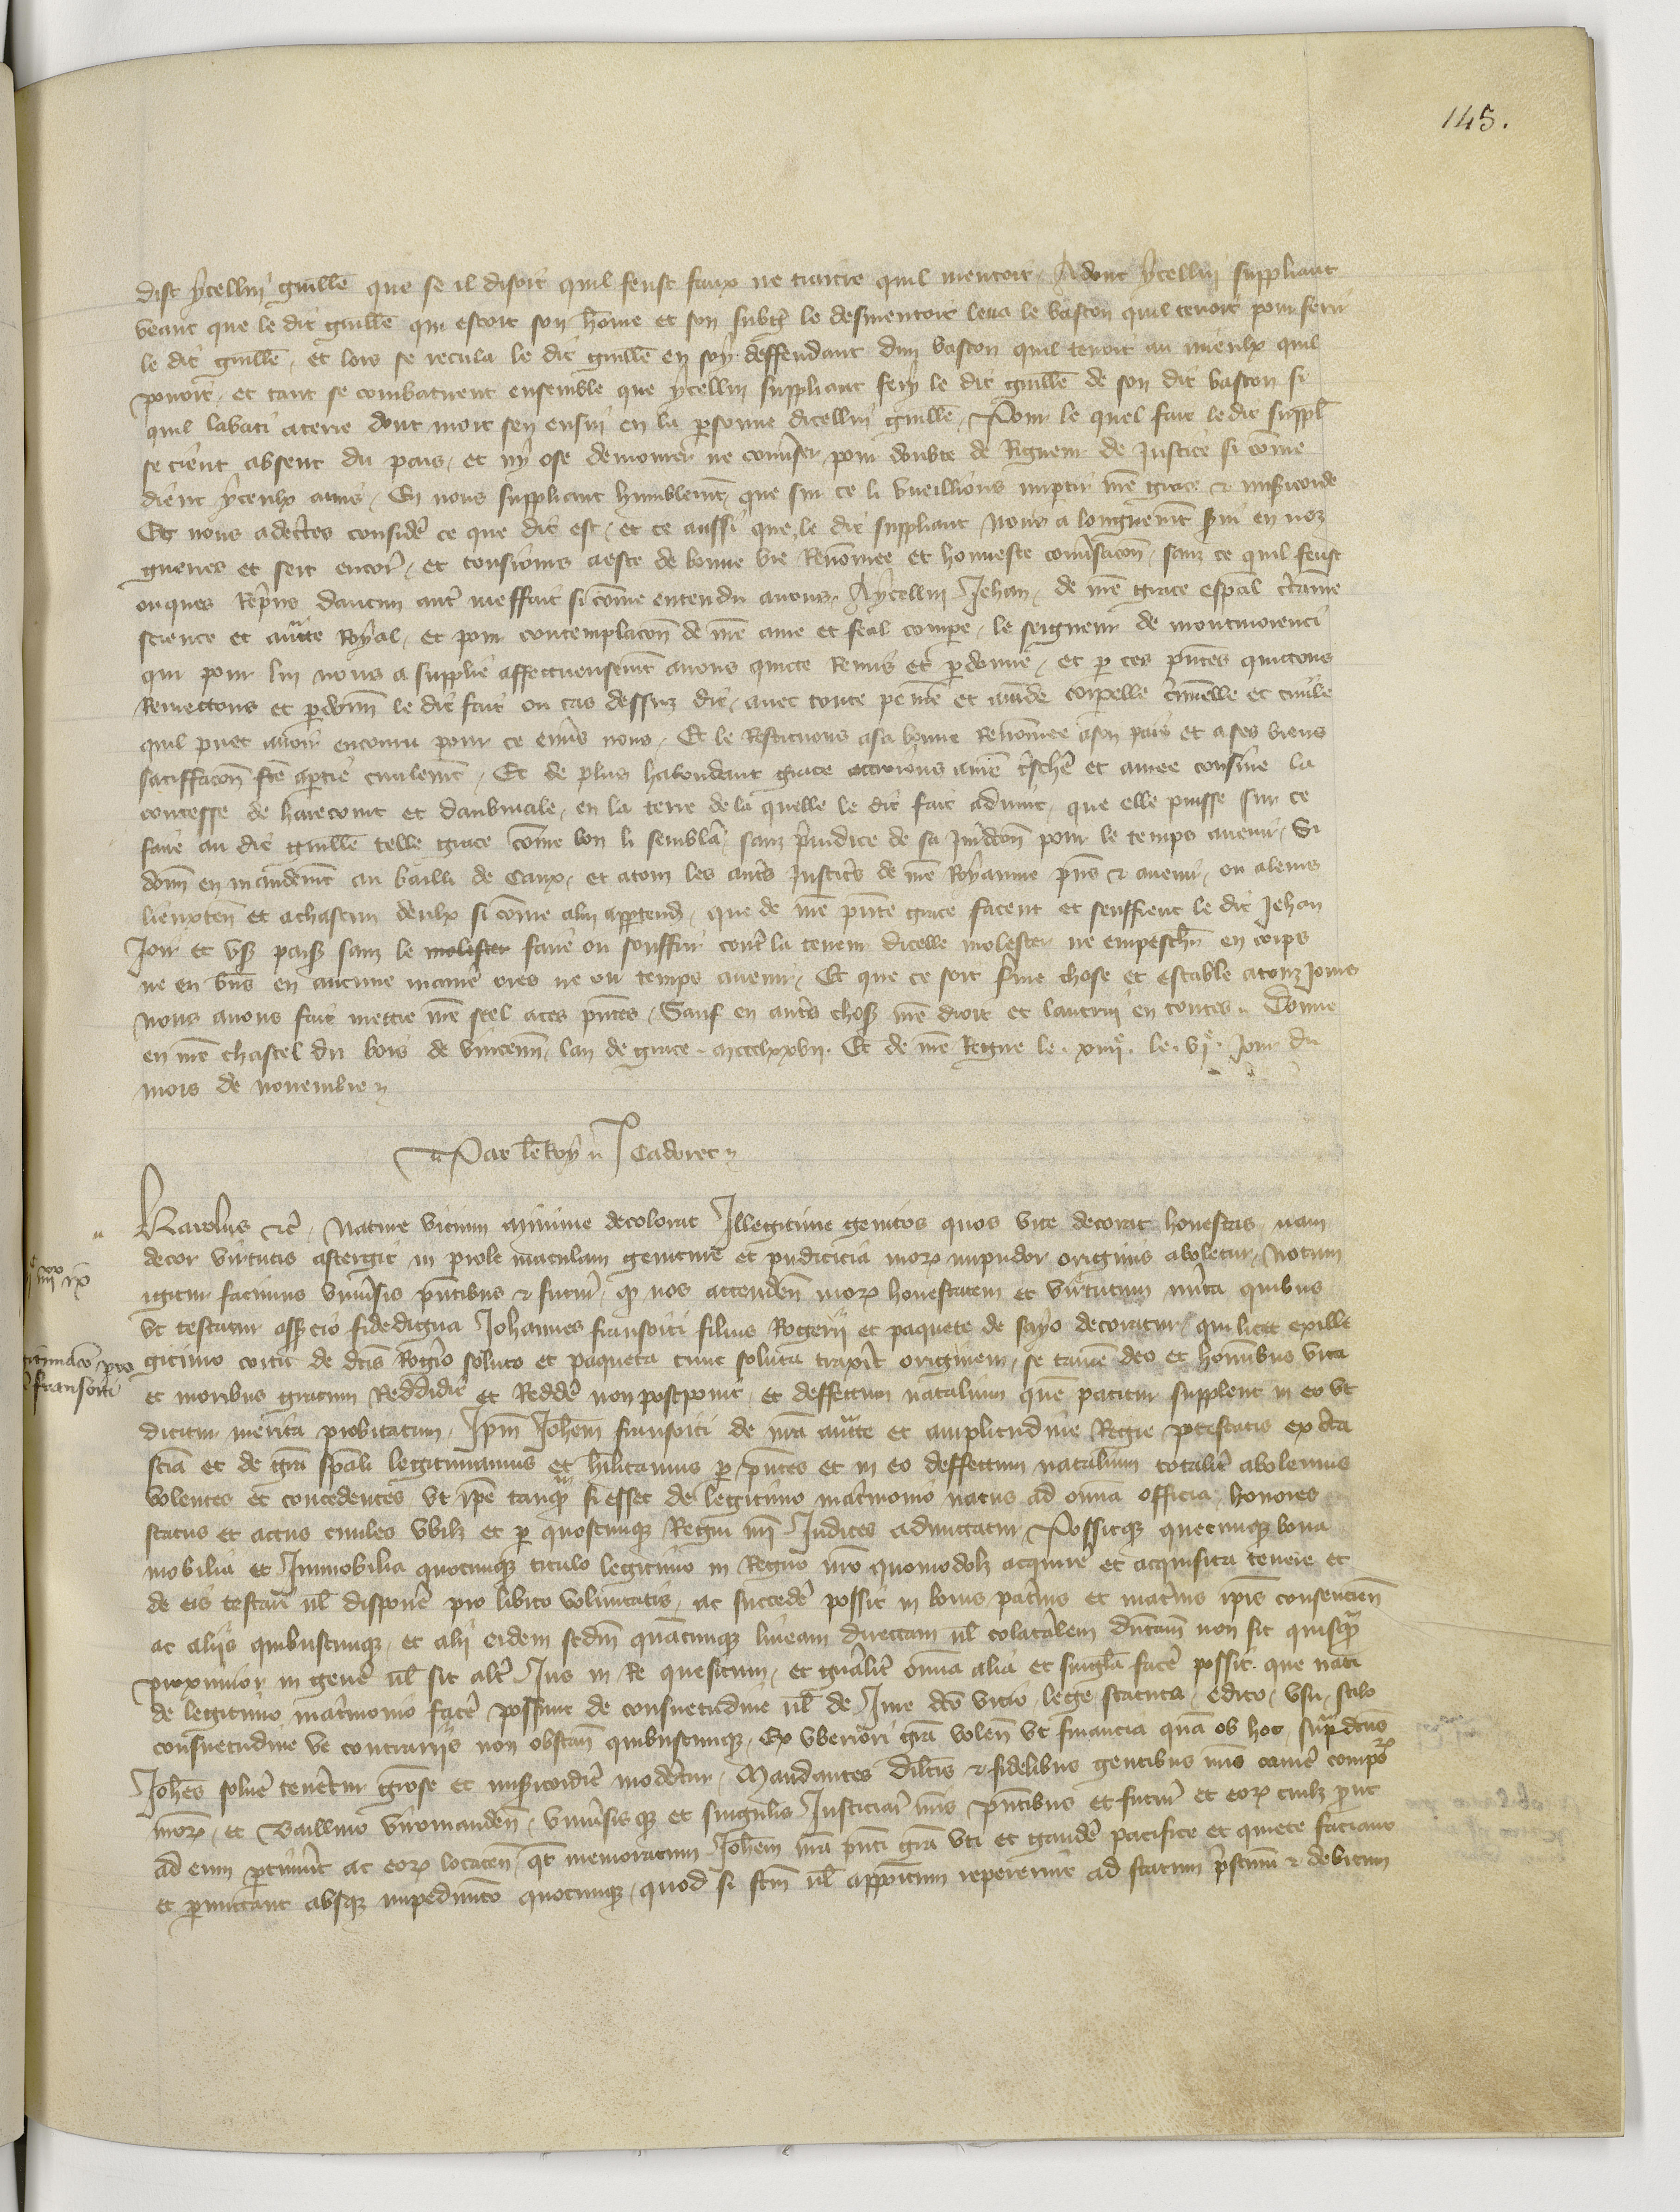 145.
dist ycellui guille que se il disoit quil feust faux ne traitre quil mentoit. Adont ycellui suppliant
veant que le dit guille qui estoit son home et son subget le desmentoit leva le baston quil tenoit pour ferir
le dit guille, et lors se recula le dit guille en soy deffendant dun baston quil tenoit au mieulx quil
povoit, et tant se combatirent ensemble que ycellui suppliant fery le dit guille de son dit baston si
quil labati a terre dont mort sen ensui en la psonne dicellui guille, Pour le quel fait le dit suppl
se tient absent du pais, et ny ose demourer ne conuser pour doubte de Rigueur de Justice si come
dient yceulx amis, En nous suppliant humblemt que sur ce li vueillions imptir nre grace & misicorde
Et nous adctes consider ce que dit est, et ce aussi que le dit suppliant nous a longuemt sui en noz
guerres et sert encor, et tousiours a este de bonne vie Renomee et honneste conusacon, sanz ce quil feust
onques Repris daucun autr meffait si come entendu avons, A ycellui Jehan, de nre grace espal ctaine
science et auctte Royal, et pour contemplacon de nre ame et feal compere, le seigneur de montmorenci
qui pour lui nous a supplie affectueusemt avons quicte Remis et pdonne, et p ces pntes quictons
Remettons et pdonn le dit fait ou cas dessuz dit, avec toute peine et amde corpelle criminelle et civile
quil puet avoir encouru pour ce envs nous, Et le Restituons a sa bonne Renomee a son pais et a ses biens
satiffacon fce aptie civilemt, Et de plus habondant grace octroions a nre tschere et amee cousine la
contesse de harecourt et daubmale, en la terre de la quelle le dit fait advint, que elle puisse sur ce
faire au dit guille telle grace come bon li semblera sanz preiudice de sa Jurdcon pour le temps avenir, Si
donn en mandemt au bailli de Caux, et a touz les autrs Justiciers de nre Royaume pns & avenir, ou a leurs
lieuxten et a chascun deulx si come a lui apptendra, que de nre pnte grace facent et seuffrent le dit Jehan
Joir et user paisiblement sanz le molester faire ou souffrir contr la teneur dicelle molester ne empescher en corps
ne en biens en aucune maniere ores ne ou temps avenir, Et que ce soit ferme chose et estable a touz Jours
nous avons fait mettre nre seel a ces pntes, Sauf en autrs choses nre droit et lautruy en toutes. Donne
en nre chastel du bois de vincenn, lan de grace. mccclxxvii. Et de nre Regne le. xiiii. le. vi. Jour du
mois de novembre
Par le Roy J Cadoret
Karolus etc, Nature vicium minime decolorat Illegitime genitos quos vite decorat honestas, nam
decor virtutis abstergit in prole maculam geniture et pudicicia mor impudor originis aboletur, Notum
igitur facimus universis pntibus & futuris, qd nos attenden mor honestatem et virtutum merita quibus
ut testatur assercio fidedigna Johannes fransoiti filius Rogerii et paquete de sayo decoratur, qui licet ex ille
gitimo coitu de dcis Rogero soluto et paqueta tunc soluta traxerit originem, se tamen deo et hominibus vita
et moribus gratum Reddidit et Redde non postponit, et deffectum natalium quem patitur supplent in eo ut
dicitur merita probitatum, Ipm Johem fransoiti de nra auctte et amplitudine Regie potestatis ex cta
scia et de gra spali legitimamus et hilitamus p pntes et in eo deffectum natalium totaliter abolemus
volentes et concedentes ut ipe tanq si esset de legitimo matrimonio natus ad omnia officia honores
status et actus civiles ubilz et p quoscunque Regni nri Judices admittatur, Possitque quecunque bona
mobilia et Immobilia quocunque titulo legitimo in Regno nro quomodolz acquirere et acquisita tenere et
de eis testari ul disponere pro libito voluntatis, ac succedere possit in bonis patris et matris ipis consencien
ac aliis quibuscunque, et alii eidem scdm quacunque lineam directam ul colateralem dumtam non sit quisquam
proximior in genere ul sit alteri Jus in Re quesitum, et generaliter omnia alia et singla facere possit que nati
de legitimo matrimonio facere possunt de consuetudine ul de Jure dco vicio lege statuta, edicto, usu, stilo
consuetudine ve contrariis non obstan quibuscunque, Ex uberiori gra volen ut financia quam ob hoc supdcus
Johes solvere tenetur grose et misericorditer moderetur, Mandantes dilcis & fidelibus gentibus nris camere compo
nror, et Baillivo viromanden, universisque et singulis Justiciar nris pntibus et futuris et eor cuilz prout
ad eum ptinuerit ac eor locaten, qt memoratum Johem nra pnti gra uti et gaudere pacifice et quiete faciant
et pmittant absque impedimento quocunque, quod si fcm ul appositum repererint ad statum pristinum & debitum
iiii xx ix
fransoiti